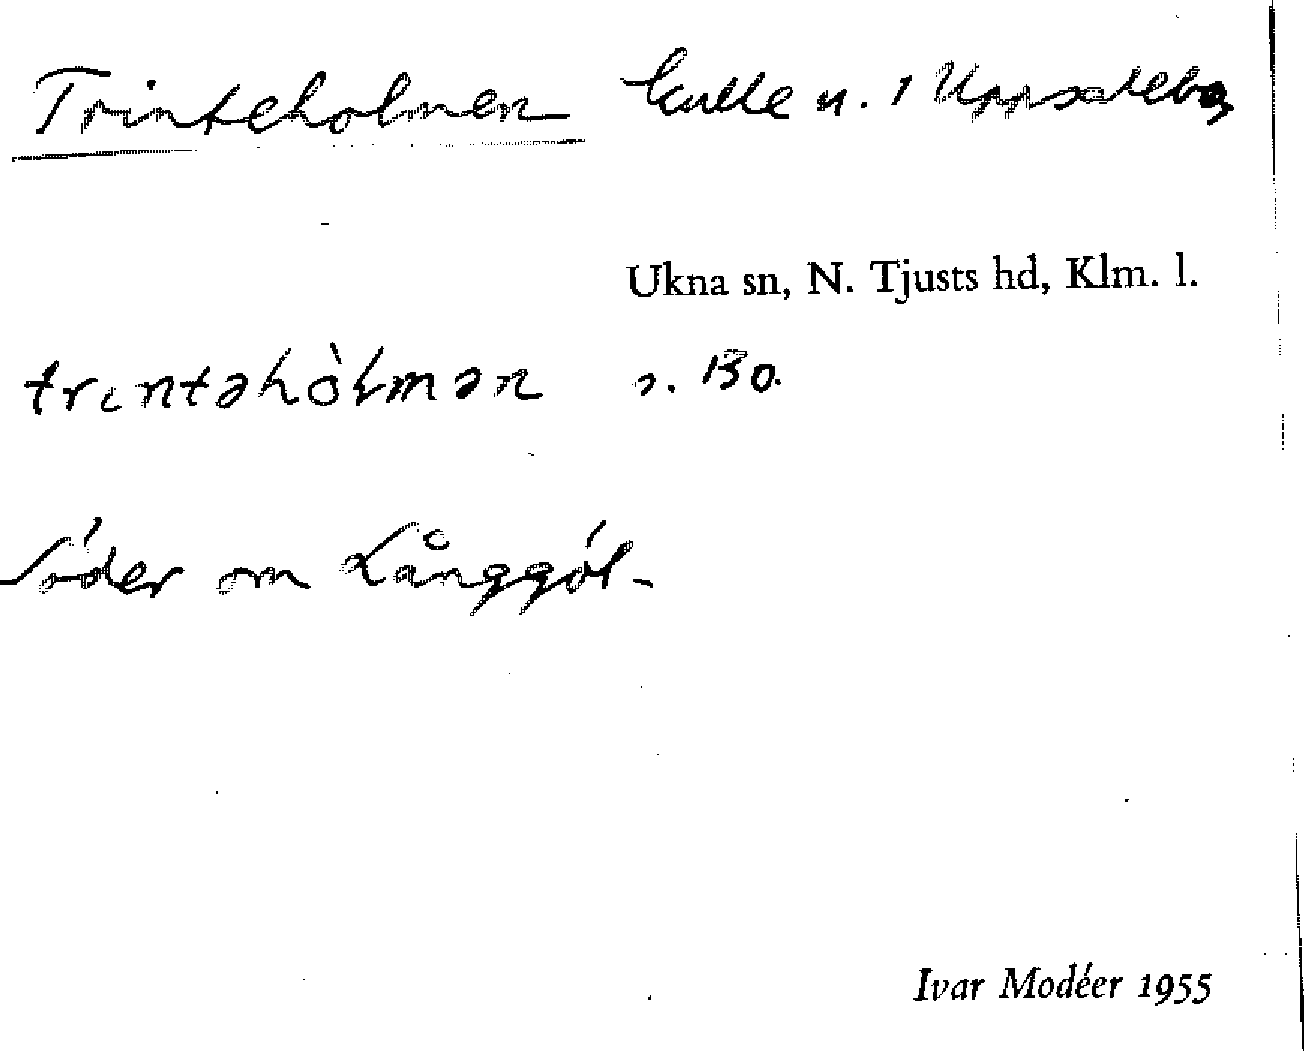 Trinteholmen kulle n. 1 Uppsalebo
Ukna sn, N. Tjusts hd, Klm. l.
trıntəhòłmən s. Bo.
Söder om Långgöl-
Ivar Modéer 1955